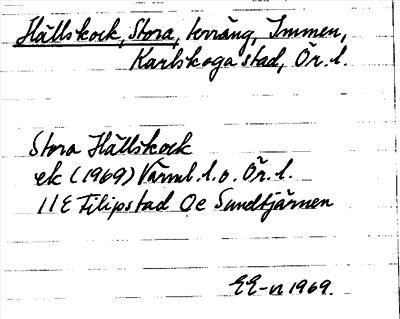 Hällskock, Stora, terräng, Immen,
Karlskoga stad, Ör. l.
Stora Hällskock
ek (1969) Värml. l. o. Ör. l.
11E Filipstad 0e Sundtjärnen
EE-n 1969.